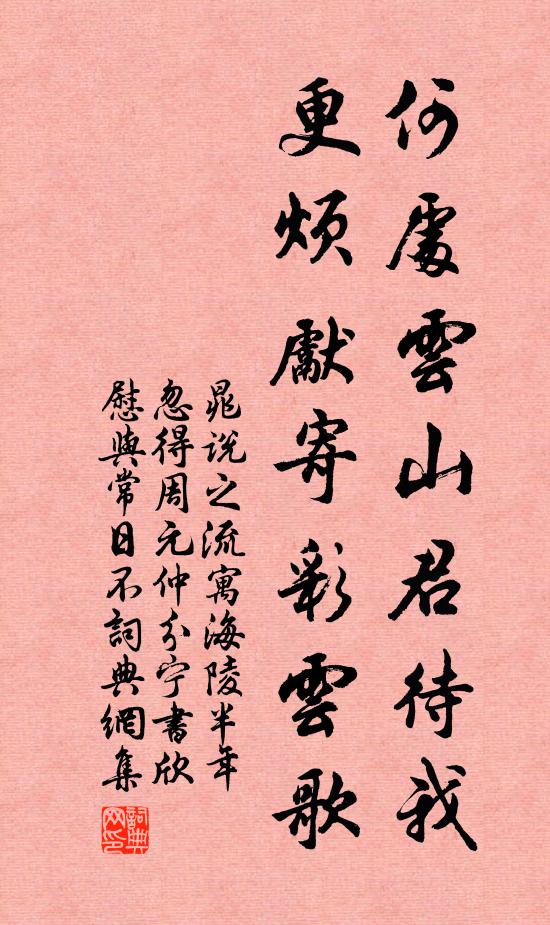 何處雲山君待我
更煩獻寄彩雲歌
晁說之流寓海陵半年
忽得周元仲分宁書欣
慰與常日不詞典網集
詞典网印